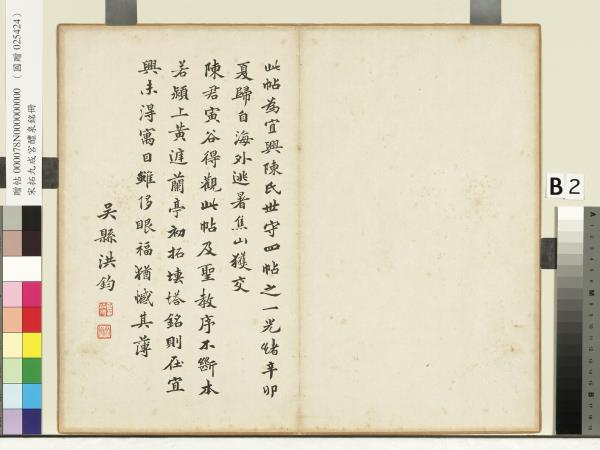 此帖為宜興陳氏世守四帖之一光緒辛卯
夏歸自海外逃暑焦山獲交
陳君寅谷得觀此帖及聖教序不斷本
若潁上黃連蘭亭初拓塼塔銘則在宜
興未得寓目雖侈眼福猶憾其薄
吳縣洪鈞
贈帖 000078N000000000 (國贈 025424)
宋拓九成宮醴泉銘冊
B 2
A
M
B